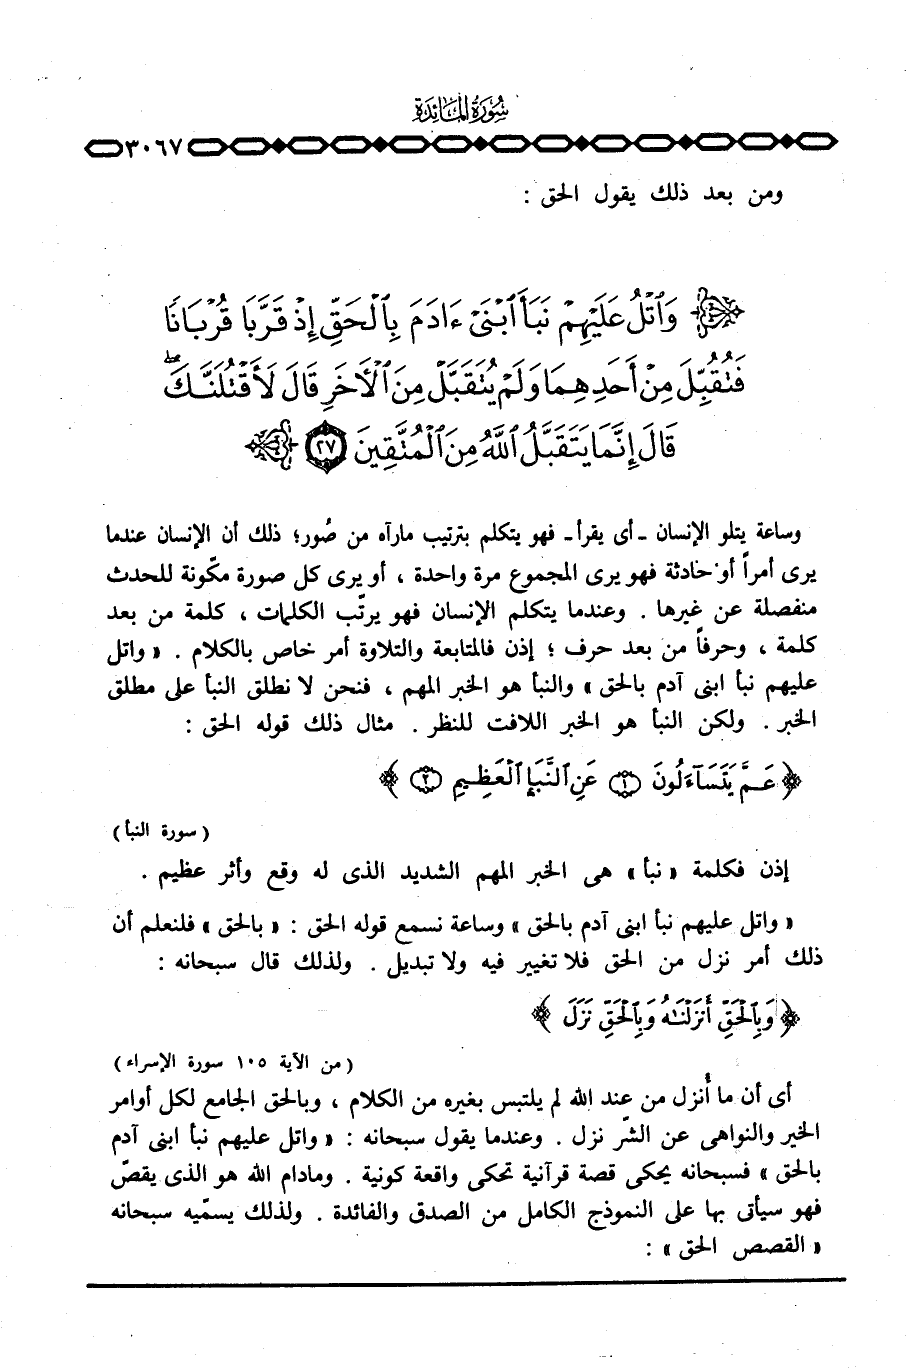 سُورَةُ المَائِدَة
٣٠٦٧
ومن بعد ذلك يقول الحق :
وَٱتْلُ عَلَيْهِمْ نَبَأَ ٱبْنَىْ ءَادَمَ بِٱلْحَقِّ إِذْ قَرَّبَا قُرْبَانًا
فَتُقُبِّلَ مِنْ أَحَدِهِمَا وَلَمْ يُتَقَبَّلْ مِنَ ٱلْأَخَرِ قَالَ لَأَقْتُلَنَّكَ ۖ
قَالَ إِنَّمَا يَتَقَبَّلُ ٱللَّهُ مِنَ ٱلْمُتَّقِينَ ٢٧
وساعة يتلو الإنسان ـ أى يقرأ ـ فهو يتكلم بترتيب مارآه من صُور؛ ذلك أن الإنسان عندما
يرى أمراً أو حادثة فهو يرى المجموع مرة واحدة ، أو يرى كل صورة مكّونة للحدث
منفصلة عن غيرها . وعندما يتكلم الإنسان فهو يرتّب الكلمات ، كلمة من بعد
كلمة ، وحرفاً من بعد حرف ؛ إذن فالمتابعة والتلاوة أمر خاص بالكلام . « واتل
عليهم نبأ ابنى آدم بالحق » والنبأ هو الخبر المهم ، فنحن لا نطلق النبأ على مطلق
الخبر . ولكن النبأ هو الخبر اللافت للنظر . مثال ذلك قوله الحق :
﴿ عَمَّ يَتَسَآءَلُونَ ١ عَنِ ٱلنَّبَإِ ٱلْعَظِيمِ ٢ ﴾
( سورة النبأ )
إذن فكلمة « نبأ » هى الخبر المهم الشديد الذى له وقع وأثر عظيم .
« واتل عليهم نبأ ابنى آدم بالحق » وساعة نسمع قوله الحق : « بالحق » فلنعلم أن
ذلك أمر نزل من الحق فلا تغيير فيه ولا تبديل . ولذلك قال سبحانه :
﴿ وَبِٱلْحَقِّ أَنزَلْنَٰهُ وَبِٱلْحَقِّ نَزَلَ ﴾
( من الآية ١٠٥ سورة الإسراء )
أى أن ما أُنزل من عند الله لم يلتبس بغيره من الكلام ، وبالحق الجامع لكل أوامر
الخير والنواهى عن الشّر نزل . وعندما يقول سبحانه : « واتل عليهم نبأ ابنى آدم
بالحق » فسبحانه يحكى قصة قرآنية تحكى واقعة كونية . ومادام الله هو الذى يقصّ
فهو سيأتى بها على النموذج الكامل من الصدق والفائدة . ولذلك يسمّيه سبحانه
« القصص الحق » :